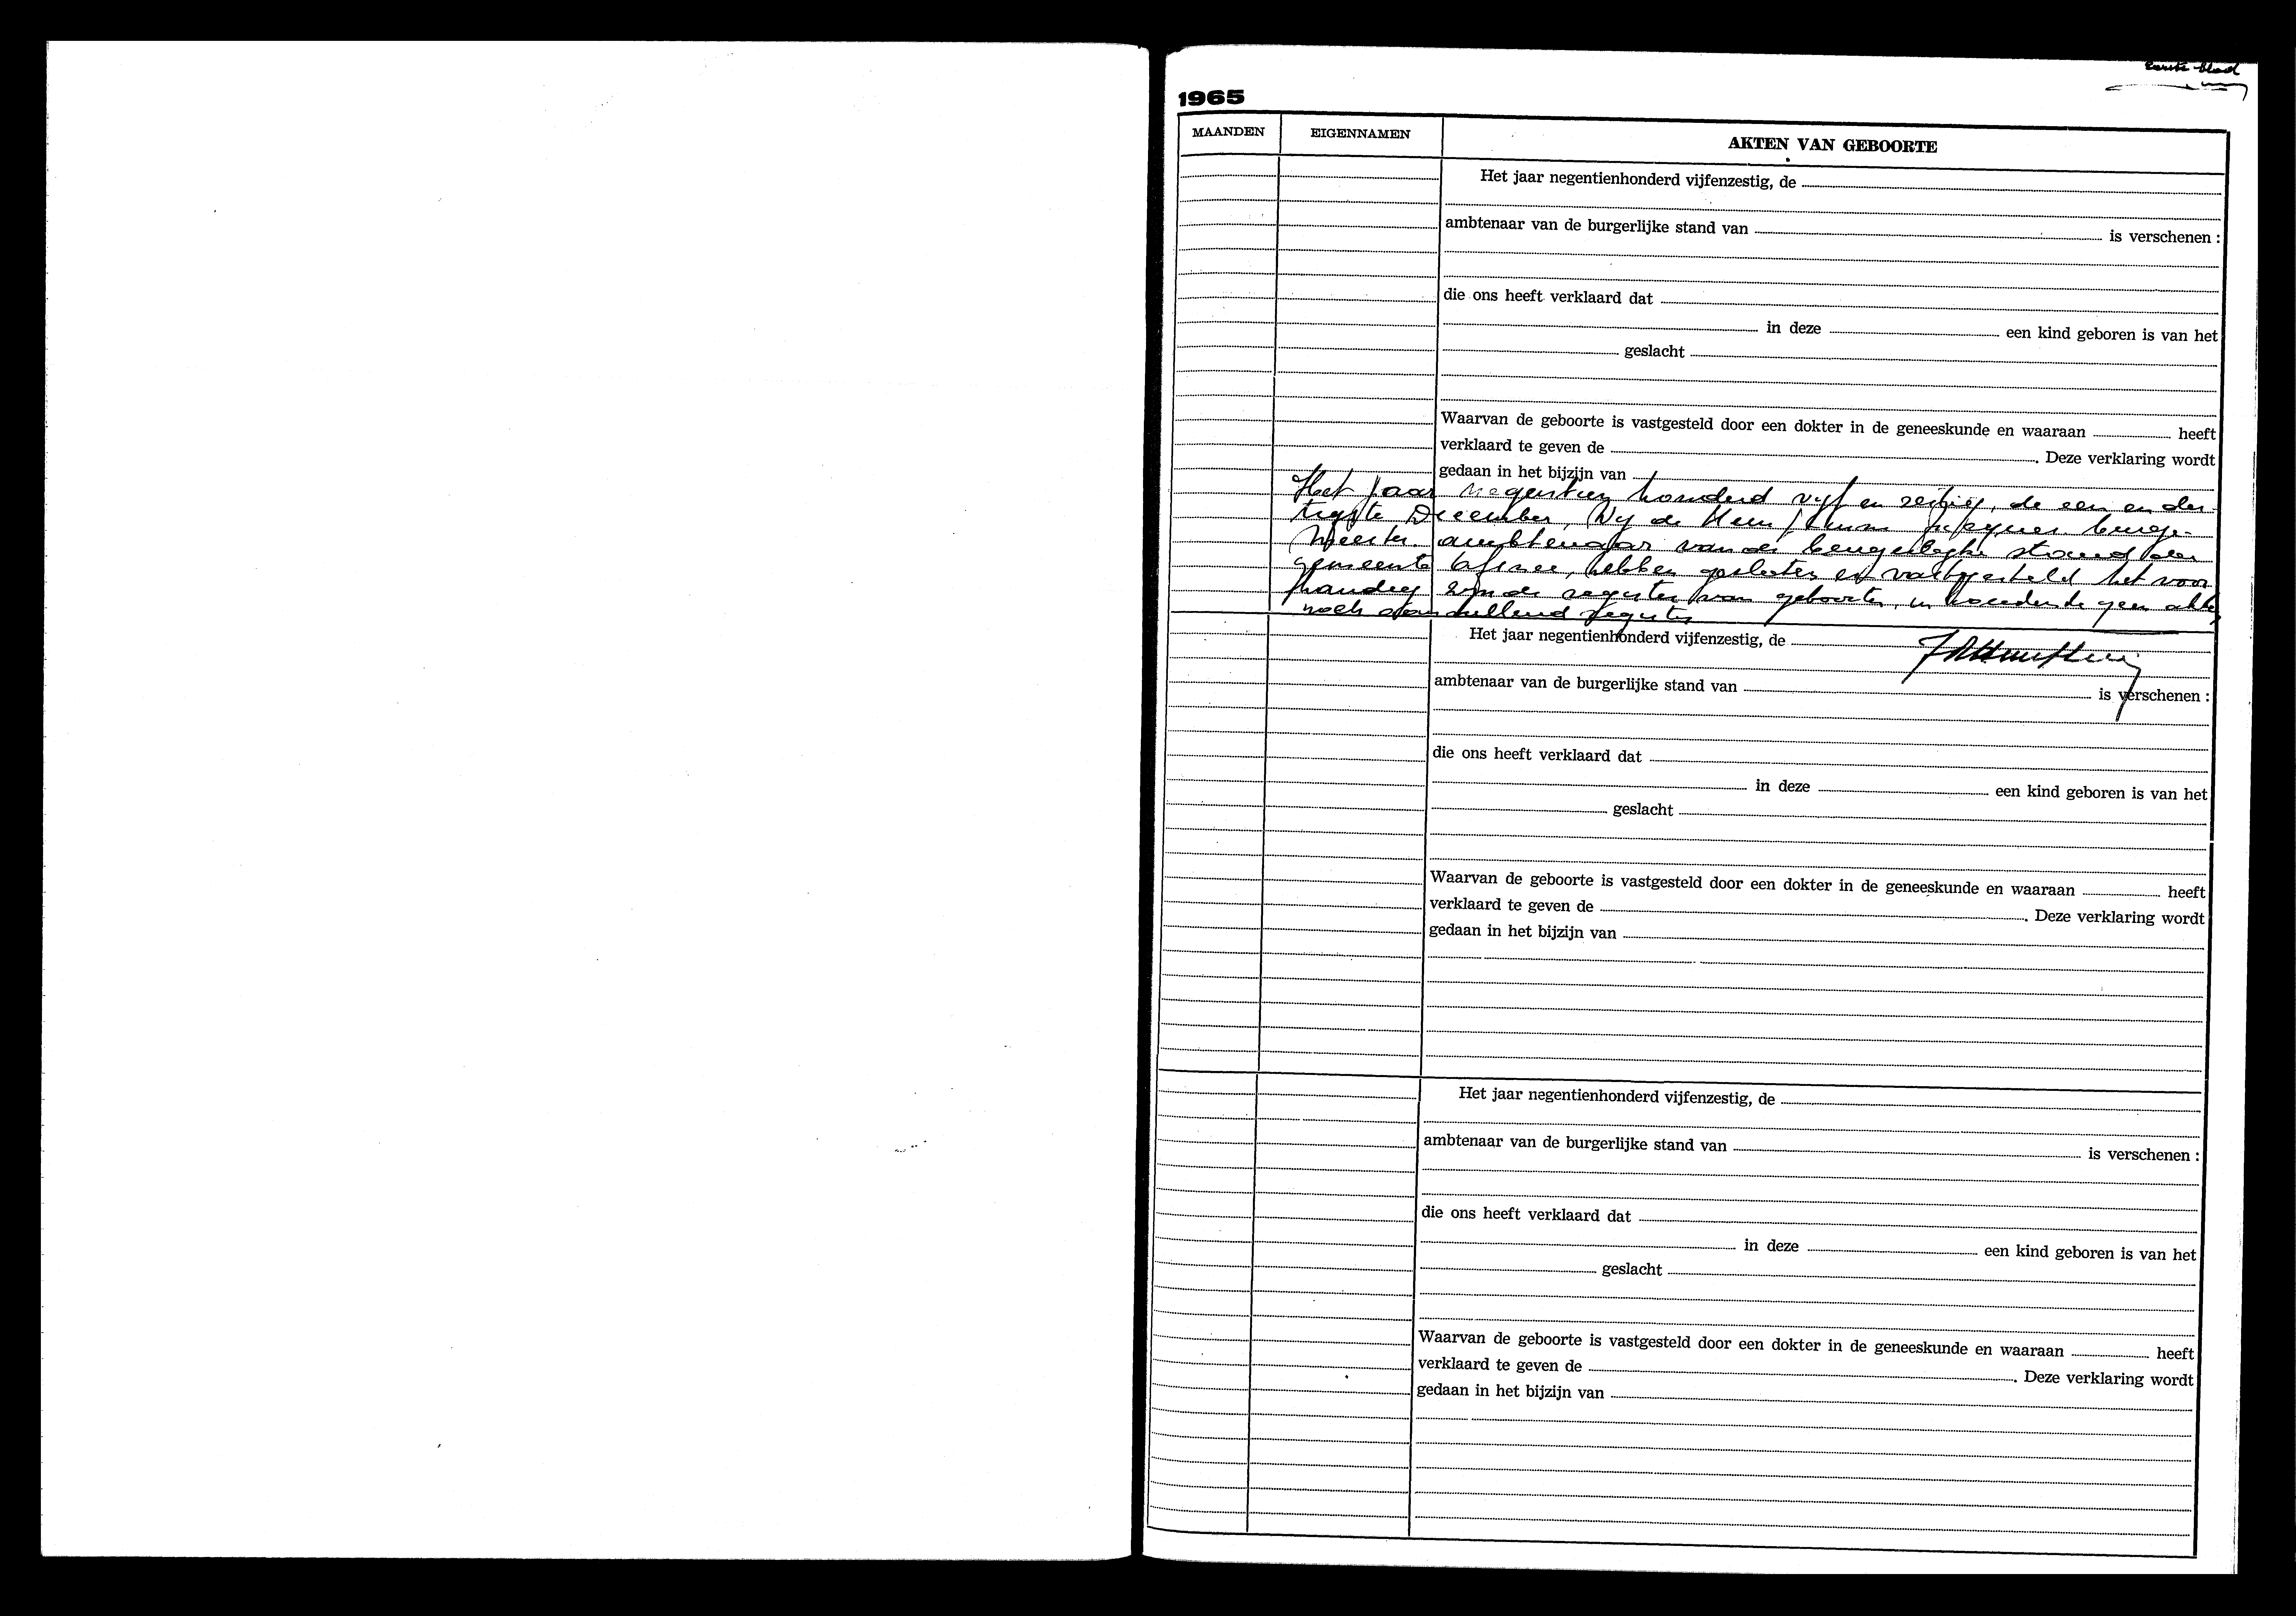 eerste blad
1965
MAANDEN EIGENNAMEN AKTEN VAN GEBOORTE
Het jaar negentienhonderd vijfenzestig, de
ambtenaar van de burgerlijke stand van is verschenen :
die ons heeft verklaard dat
in deze een kind geboren is van het
geslacht
Waarvan de geboorte is vastgesteld door een dokter in de geneeskunde en waaraan heeft
verklaard te geven de . Deze verklaring wordt
gedaan in het bijzijn van
Het jaar negentien honderd vijf en zestig, de een en der
tigste December, Wij de Heer burge-
meester ambtenaar van de burgerlijke stand der
gemeente hebben gesloten en vastgesteld het voor
handig zijnde register van geboorten, inhoudende geen akte
noch aanvullend register
Het jaar negentienhonderd vijfenzestig, de
ambtenaar van de burgerlijke stand van is verschenen :
die ons heeft verklaard dat
in deze een kind geboren is van het
geslacht
Waarvan de geboorte is vastgesteld door een dokter in de geneeskunde en waaraan heeft
verklaard te geven de . Deze verklaring wordt
gedaan in het bijzijn van
Het jaar negentienhonderd vijfenzestig, de
ambtenaar van de burgerlijke stand van is verschenen :
die ons heeft verklaard dat
in deze een kind geboren is van het
geslacht
Waarvan de geboorte is vastgesteld door een dokter in de geneeskunde en waaraan heeft
verklaard te geven de . Deze verklaring wordt
gedaan in het bijzijn van